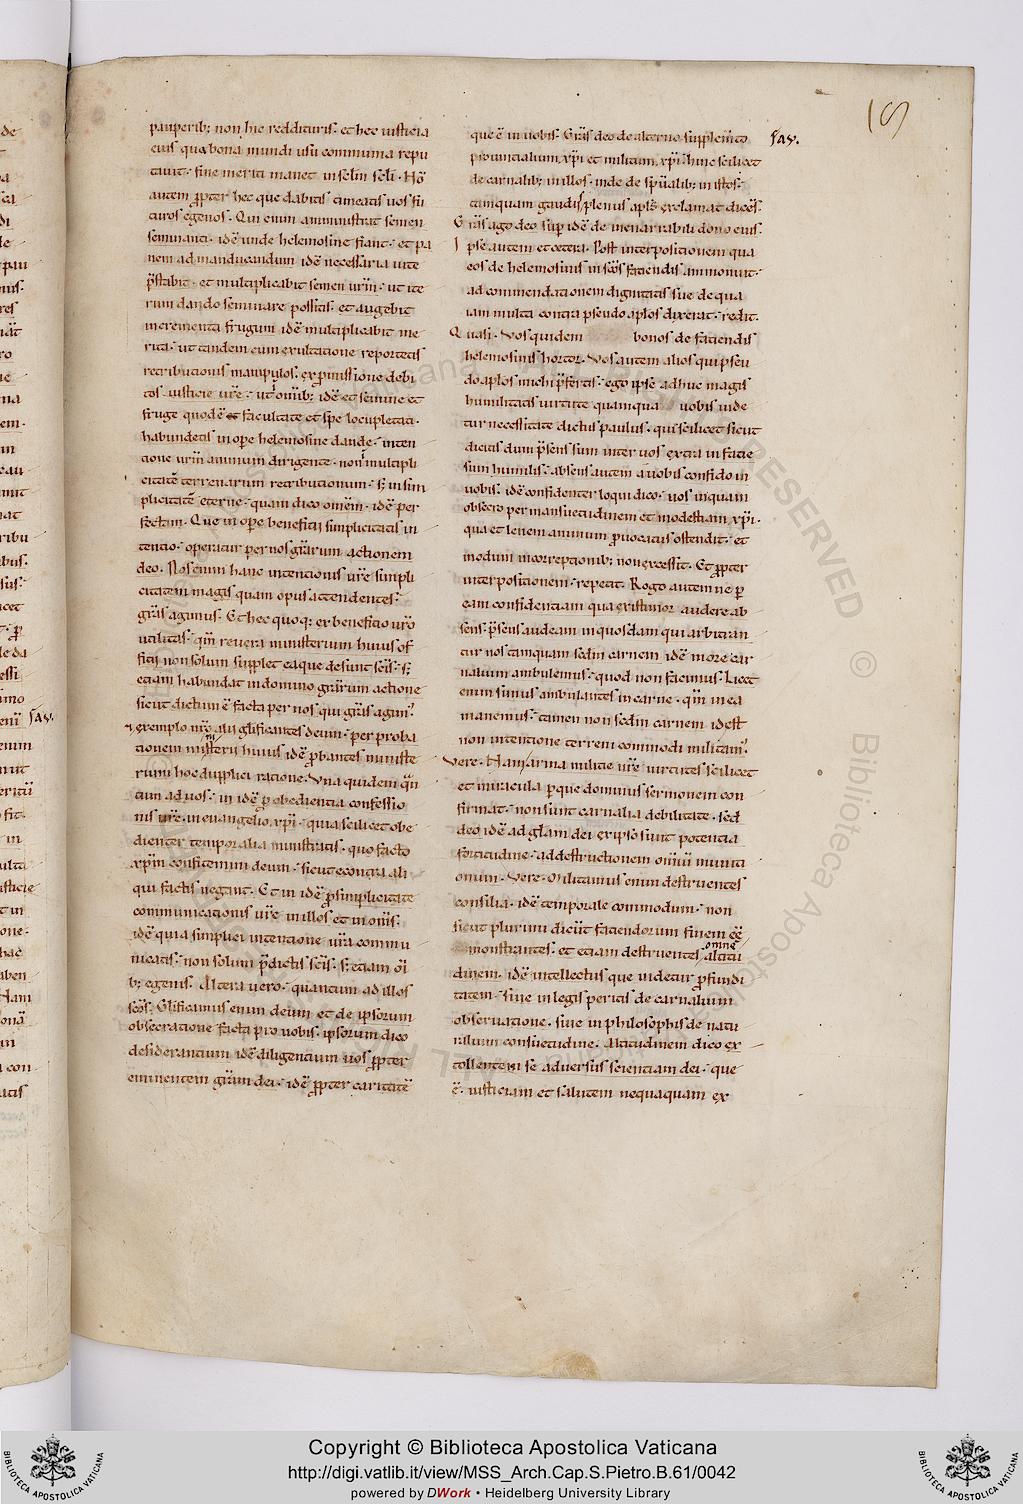 pauperib; non hic reddituris. et hec iusticia
eius qua bona mundi usu communia repu
tauit. sine meriti manet in sc̄lm sc̄li. Hō
autem ꝓpter hec que dabitis timeatis uos fu
turos egenos. Qui enim amministrat semen
seminanti. idē unde helemosine fiant. et pa
nem ad manducandum idē necessaria uite
p̄stabit. et multiplicabit semen ur̄m. ut ite
rum dando seminare possitis. et augebit
incrementa frugum idē multiplicabit me
rita. ut tandem cum exultatione reportetis
retributionis manipulos. ex ꝓmissione debi
tos iusticie ur̄e. ut omīb; idē et semine et
fruge quodē facultate et spe locupletati.
habundetis in oꝑe helemosine dande. inten
tione ur̄m animum dirigente. non multipli
citatē terrenarum retributionum. s; in sim
plicitatē eterne. quam dico omēm. idē per
fectam. Que in oꝑe beneficij simplicitatis in
tentio. operatur per nos gr̄arum actionem
deo. Nos enim hanc intentionis ur̄e simpli
citatem magis quam opus attendentes.
gr̄as agimus. Et hec quoq; ex beneficio ur̄o
utilitas. qm̄ reuera ministerium huius of
ficij non solum supplet ea que desunt scīs. s;
etiam habundat in domino gr̄arum actione
sicut dictum ē facta per nos qui gr̄as agim;
exemplo nr̄o alij glīficantes deum. per proba
tionem misterii huius idē ꝓbantes ministe
rium hoc dupplici ratione. Una quidem quā
tum ad uos. in idē ꝓ obedientia confessio
nis ur̄e. in euangelio xp̄i. quia scilicet obe
dienter temporalia ministratis. quo facto
xp̄m confitemini deum. sicut econtra ali
qui factis negant. Et in idē ꝓ simplicitate
communicationis ur̄e in illos et in om̄s.
idē quia simplici intentione ur̄a commu
nicatis. non solum p̄dictis scīs. s; etiam oī
b; egenis. Altera uero. quantum ad illos
scōs. Glīficamus enim deum et de ipsorum
obsecratione facta pro uobis. ipsorum dico
desiderantium idē diligentium uos ꝓpter
eminentem gr̄am dei. idē ꝓpter caritatē
que ē in uobis. Gr̄as deo de alterno supplemt̄o
prouintialium xp̄i et militum xp̄i. hinc scilicet
de carnalib; in illos. inde de sp̄ualib; in istos.
tamquam gaudij plenus apl̄s exclamat dicēs.
Gr̄as ago deo suꝑ idē de inenarrabili dono eius.
Ipse autem et cetera. Post interpositionem qua
eos de helemosinis in scōs faciendis ammonuit.
ad commendationem dignitatis sue de qua
iam multa contra pseudo aplōs dixerat. redit.
Quasi. Uos quidem bonos de faciendis
helemosinis hortor. Uos autem alios qui pseu
do aplōs michi p̄fertis. ego ipse adhuc magis
humilitatis uirtute quamquam uobis uide
tur necessitate dictus paulus. qui scilicet sicut
dicitis dum p̄sens sum inter uos extra in facie
sum humilis. absens autem a uobis confido in
uobis. idē confidenter loqui dico. uos inquam
obsecro per mansuetudinem et modestiam xp̄i.
qua et lenem animum ꝓuocatus ostendit. et
modum in correptionib; non excessit. Et ꝓpter
interpositionem. repetit. Rogo autem ne ꝑ
eam confidentiam qua existimor audere ab
sens. p̄sens audeam in quosdam qui arbitran
tur nos tamquam scd̄m carnem idē more car
nalium ambulemus. quod non facimus. Licet
enim simus ambulantes in carne. qm̄ in ea
manemus. tamen non scd̄m carnem id est
non intentione terreni commodi militam;
Vere. Nam arma militie ur̄e uirtutes scilicet
et miracula per que dominus sermonem con
firmat. non sunt carnalia debilitate. sed
deo idē ad gl̄am dei ex ipso sunt potentia
fortitudine. ad destructionem om̄iū muniti
onum. Vere. Militamus enim destruentes
consilia. idē temporale commodum. non
sicut plurimi dicūt faciendorum finem eē
monstrantes. et etiam destruentes omnē altitu
dinem. idē intellectus que uidetur ꝓfundi
tatem. siue in legis peritis de carnalium
obseruatione. siue in philosophis de natu
ralium consuetudine. Altitudinem dico ex
tollentem se aduersus scientiam dei. que
ē. iusticiam et salutem nequaquam ex
Copyright © Biblioteca Apostolica Vaticana
http://digi.vatlib.it/view/MSS_Arch.Cap.S.Pietro.B.61/0042
powered by DWork • Heidelberg University Library